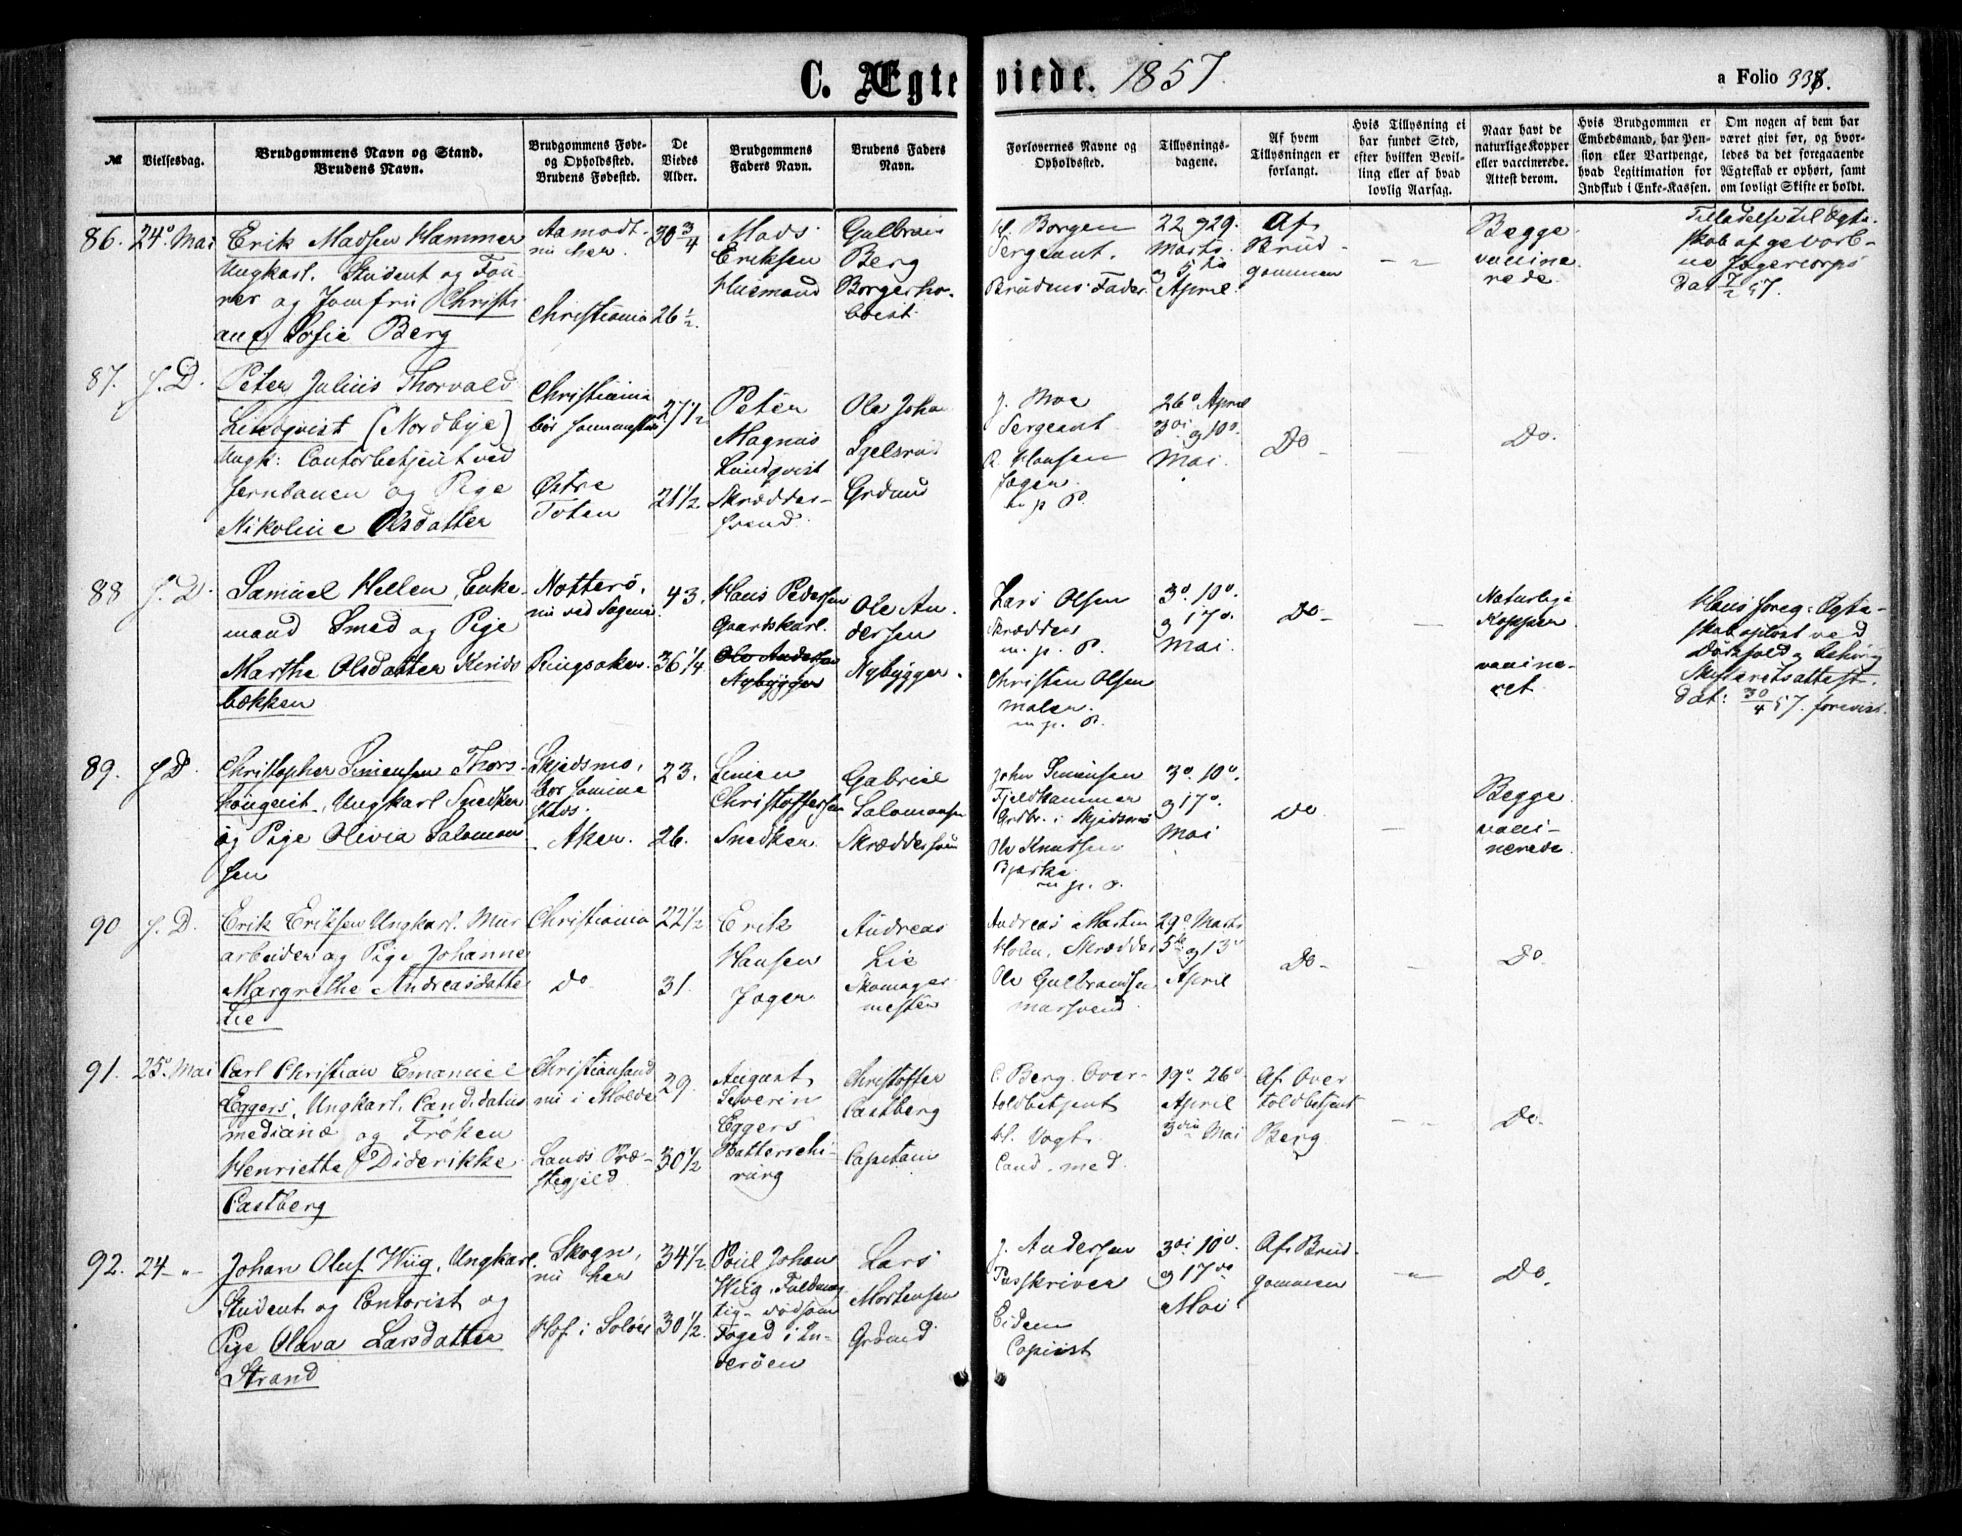 C. Ægteviede. 1857.
a Folio 338.
№
Vielsesdag.
Brudgommens Navn og Stand.
Brudens Navn.
Brudgommens Føde-
og Opholdssted.
Brudens Fødested.
De
Viedes
Alder.
Brudgommens
Faders Navn.
Brudens Faders
Navn.
Forlovernes Navne og
Opholdssted.
Tillysnings-
dagene.
Af hvem
Tillysningen er
forlangt.
Hvis Tillysning ei
har fundet Sted,
efter hvilken Bevil-
ling eller af hvad
lovlig Aarsag.
Naar havt de
naturlige Kopper
eller vaccinerede.
Attest derom.
Hvis Brudgommen er
Embedsmand, har Pen-
sion eller Vartpenge,
hvad Legitimation for
Indskud i Enke-Kassen.
Om nogen af dem har
været givt før, og hvor-
ledes da det foregaaende
Ægteskab er ophørt, samt
om lovligt Skifte er holdt.
86. 24° Mai
Erik Madsen Hammer
Ungkarl. Student og Fou-
rer og Jomfru Christi-
ane Sofie Berg
Aamodt.
nu her.
Christiania
30 3/4
26 1/2.
Mads
Eriksen
Huusmand
Gulbran
Berg
Borgerho-
Borgen
Sergeant.
Brudens Fader.
22 og 29.
Marts.
og 5te
April.
Af
Brud-
gommen
- „
Begge
vaccine-
rede.
Tilladelse til Ægte-
skab af gevorb-
ne Jægercorps
dat 7/2 57.
87. s. D.
Peter Julius Thorvald
Lindqvist (Nordbye)
Ungk: Contorbetjent ved
Jernbanen og Pige
Nikoline Olsdatter
Christiania
Østre
Toten
27 1/2
21 1/2
Peter
Magnus
Lindqvist
Skrædder-
svend.
Ole Johan
Gelsrud
Grdmd
J. Moe
Sergeant
R. Hansen
Jæger
m. p. P.
26° April
3die og 10°
Mai.
Do
-
Do.
88 s. D.
Samuel Hellen, Enke-
mand Smed og Pige
Marthe Olsdatter Kinds-
bækken
Notterø,
nu ved Sagene.
Ringsaker.
43.
36 1/4
Hans Pedersen
Gaardskarl.
Ole Andersen
Nybygger
Ole An-
dersen
Nybygger.
Lars Olsen
Skrædder
m. p. P.
Christen Olsen
maler.
m. p. P.
3°. 10°.
og 17°.
Mai.
Do
-
Naturlige
Kopper
vaccine-
ret.
Hans foreg: Ægte-
skab opløst ved
Dødsfald og behørig
Skifteretsattest
dat: 30/4 57. forevist.
89. s. D.
Christopher Simensen Thors-
Ungkarl Snedker
og Pige Olivia Salomon-
sen
Skjedsmo,
Aker.
23.
26.
Simen
Christoffersen
Snedker
Gabriel
Salomonsen
Skræddersvend
John Simensen
Fjeldhammer
Grdbr. i Skjedsmo
Ole Knudsen
Bjerke
m. p. P.
3°. 10°.
og 17°.
Mai
Do
-
Begge
vacci-
nerede.
90 s. D.
Erik Eriksen Ungkarl. Mur-
arbeider og Pige Johanne
Margrethe Andreasdatter
Lie
Christiania
Do
22 1/2
31.
Erik
Hansen
Jæger
Andreas
Lie
Skomager-
mester
Andreas Martin
Holm, Skrædder
Ole Gulbransen
mursvend.
29° Marts
5te og 13°
April
Do
-
Do.
91. 25° Mai
Carl Christian Emanuel
Eggers, Ungkarl. Candidatus
medicinæ og Frøken
Henriette Diderikke
Castberg
Christiansand
nu i Molde
Lands Præ-
stegjeld
29.
30 1/2
August
Severin
Eggers
Christoffer
Castberg
Capitain
C. Berg. Over-
toldbetjent
H. Vogt.
Cand. med.
19° 26°
April
3die Mai
Af Over
toldbetjent
Berg.
- „
Do.
92. 24 - „ -
Johan Oluf Wiig, Ungkarl.
Student og Contorist og
Pige Olava Larsdatter
Strand
Skogn,
nu her
Hof i Soløer
34 1/2
30 1/2.
Poul Johan
Wiig, Fuldmæg-
tig
Foged i In-
derøen
Lars
Mortensen
Grdmd.
J. Andersen
Passkriver
Eidem
Copiist
3die 10°.
og 17de
Mai
Af Brud-
gommen
- „ -
Do.